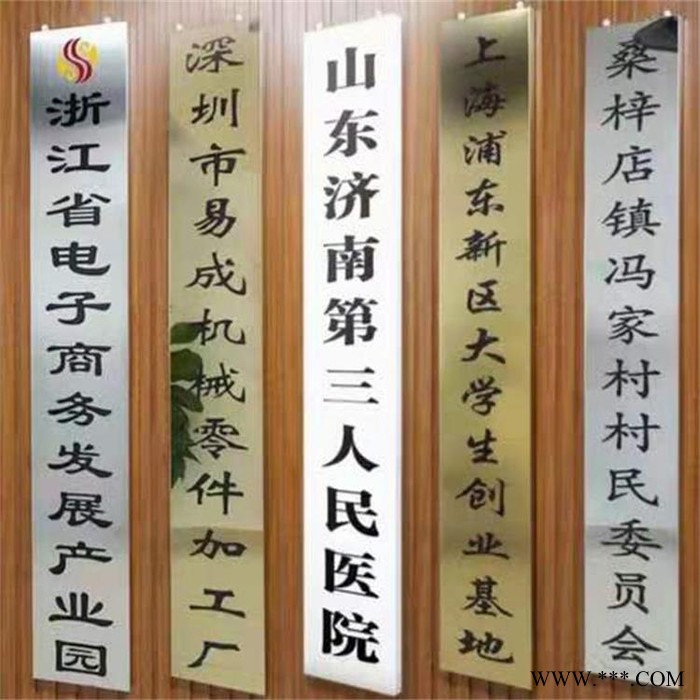 浙江省电子商务发展产业园
深圳市易成机械零件加工厂
山东济南第三人民医院
上海浦东新区大学生创业基地
桑梓店镇冯家村村民委员会
WWW.***.COM